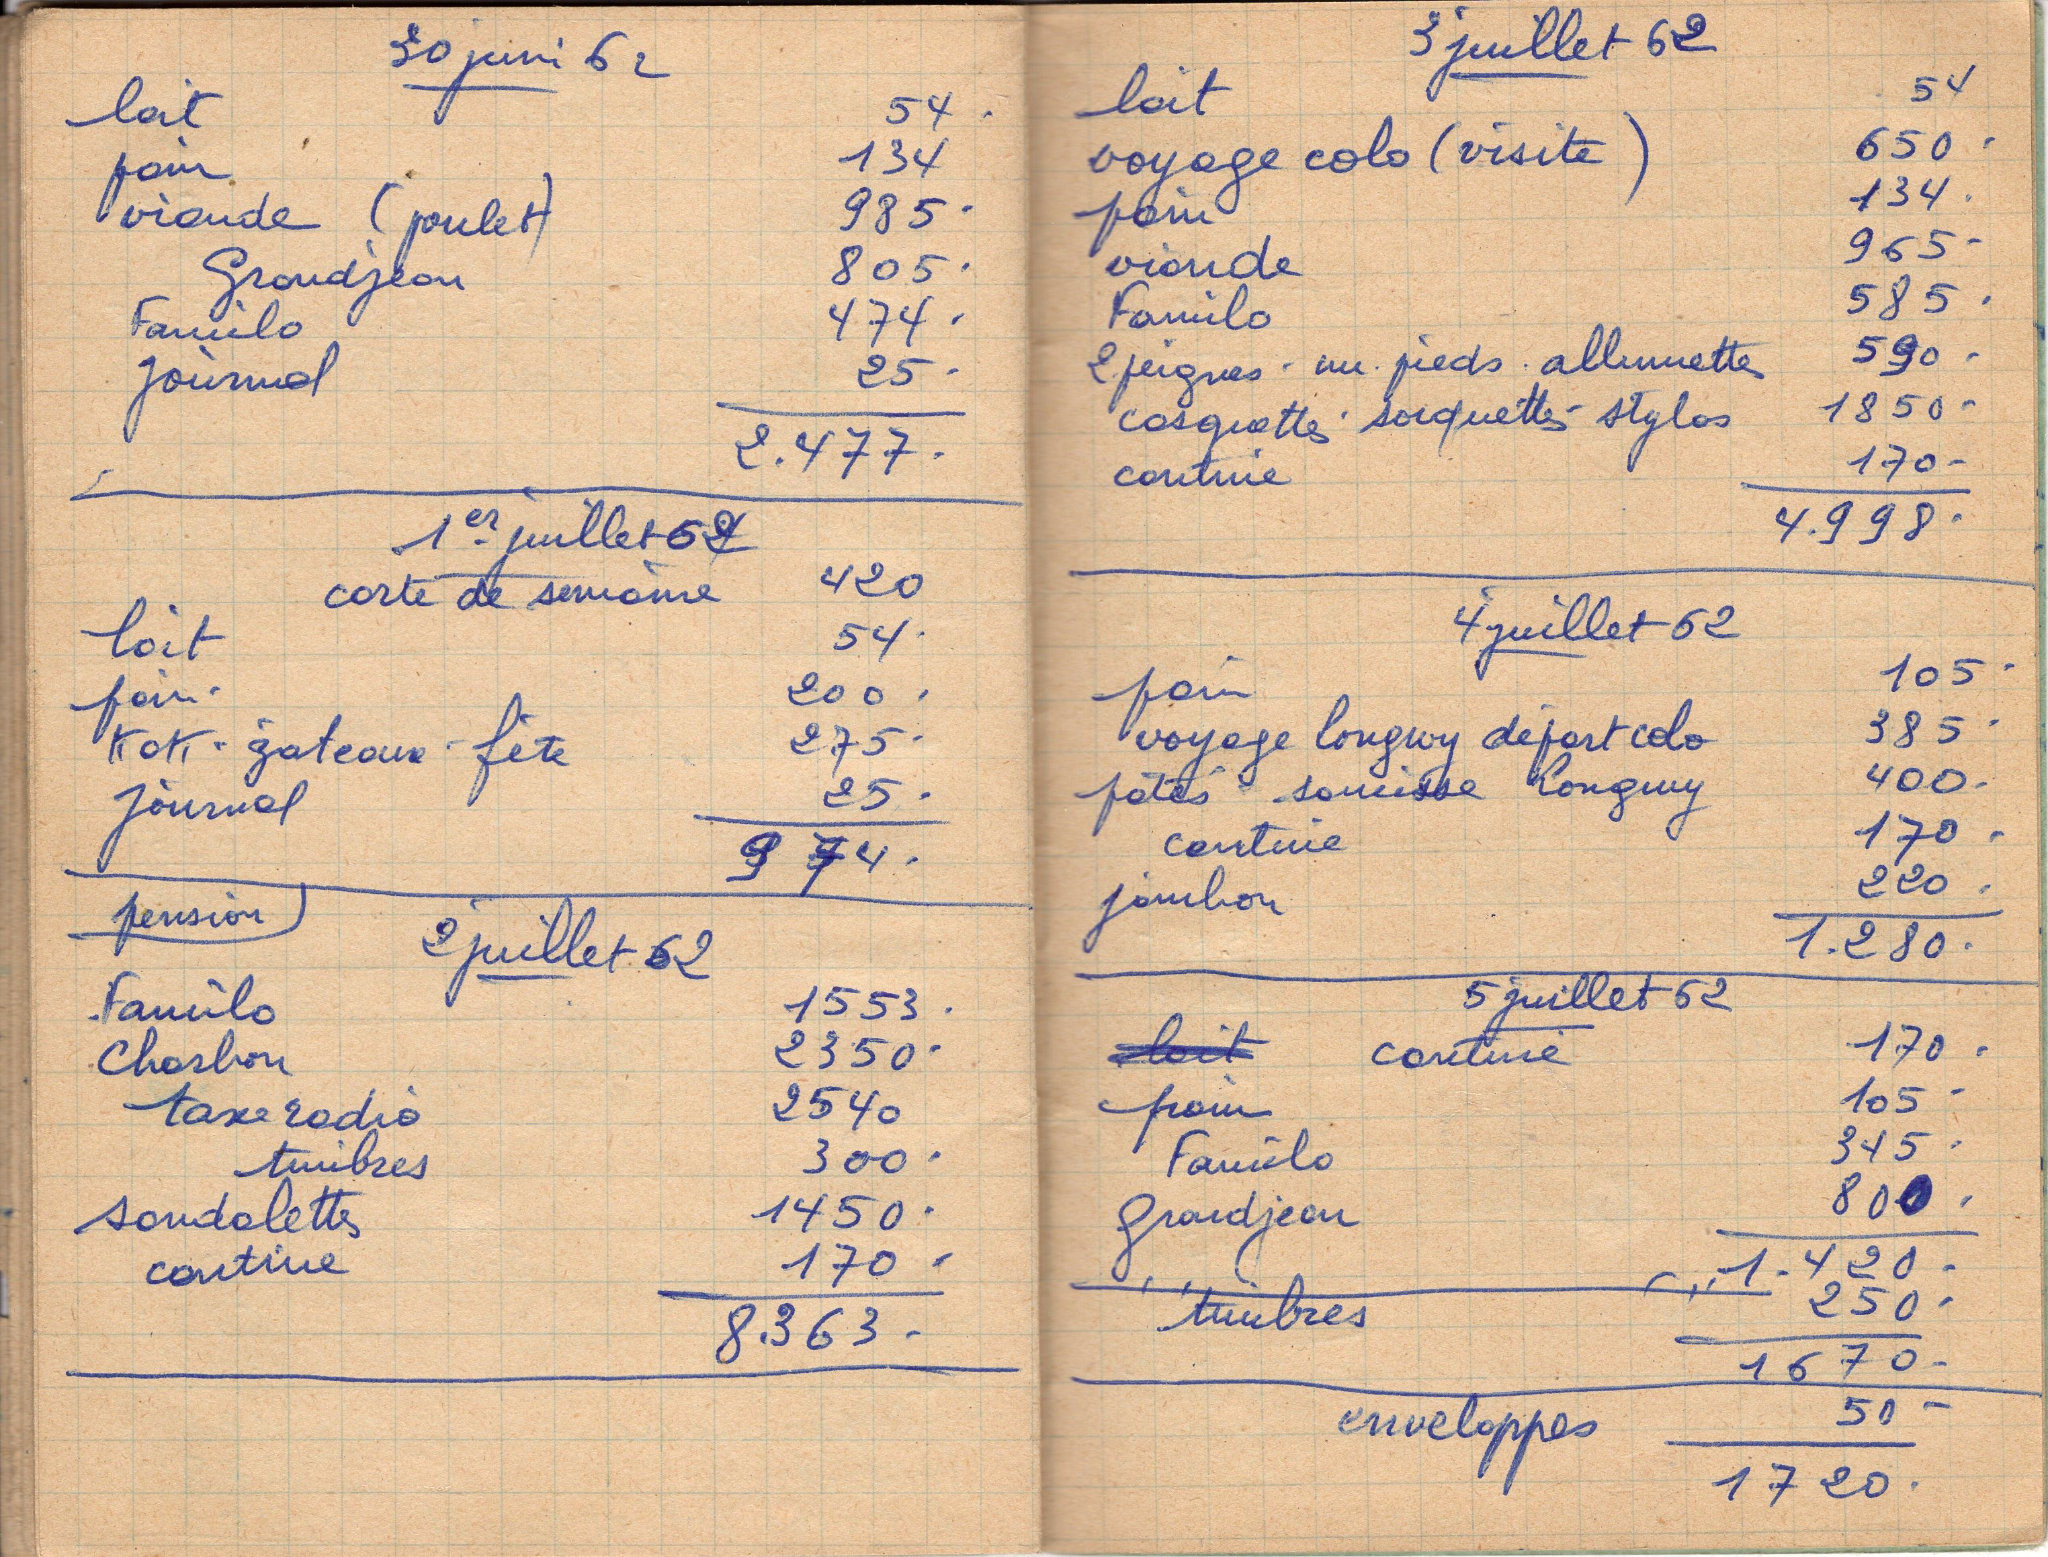 30 juin 62
lait 54.
pain 134
viande (poulet) 985.
Grandjean 805.
Familo 474.
journal 25.
2.477.
1er juillet 62
carte de semaine 420
lait 54.
pain. 200.
KOK. gateaux - fête 275.
journal 25.
974.
pension
2 juillet 62
Familo 1553.
Charbon 2350.
taxe radio 2540
timbres 300.
sandalettes 1450.
cantine 170.
8.363.
3 juillet 62
lait 54
voyage colo (visite) 650.
pain 134.
viande 965-
Familo 585.
2 peignes. nu. pieds. allumettes 590.
casquettes. socquettes - stylos 1850-
cantine 170-
4.998.
4 juillet 62
pain 105.
voyage longwy départ colo 385.
pâtés saucisse Longwy 400.
cantine 170.
jambon 220.
1.280.
5 juillet 62
lait cantine 170.
pain 105-
Familo 345.
grandjean 800.
1.420.
timbres 250.
1670-
enveloppes 50-
1720.